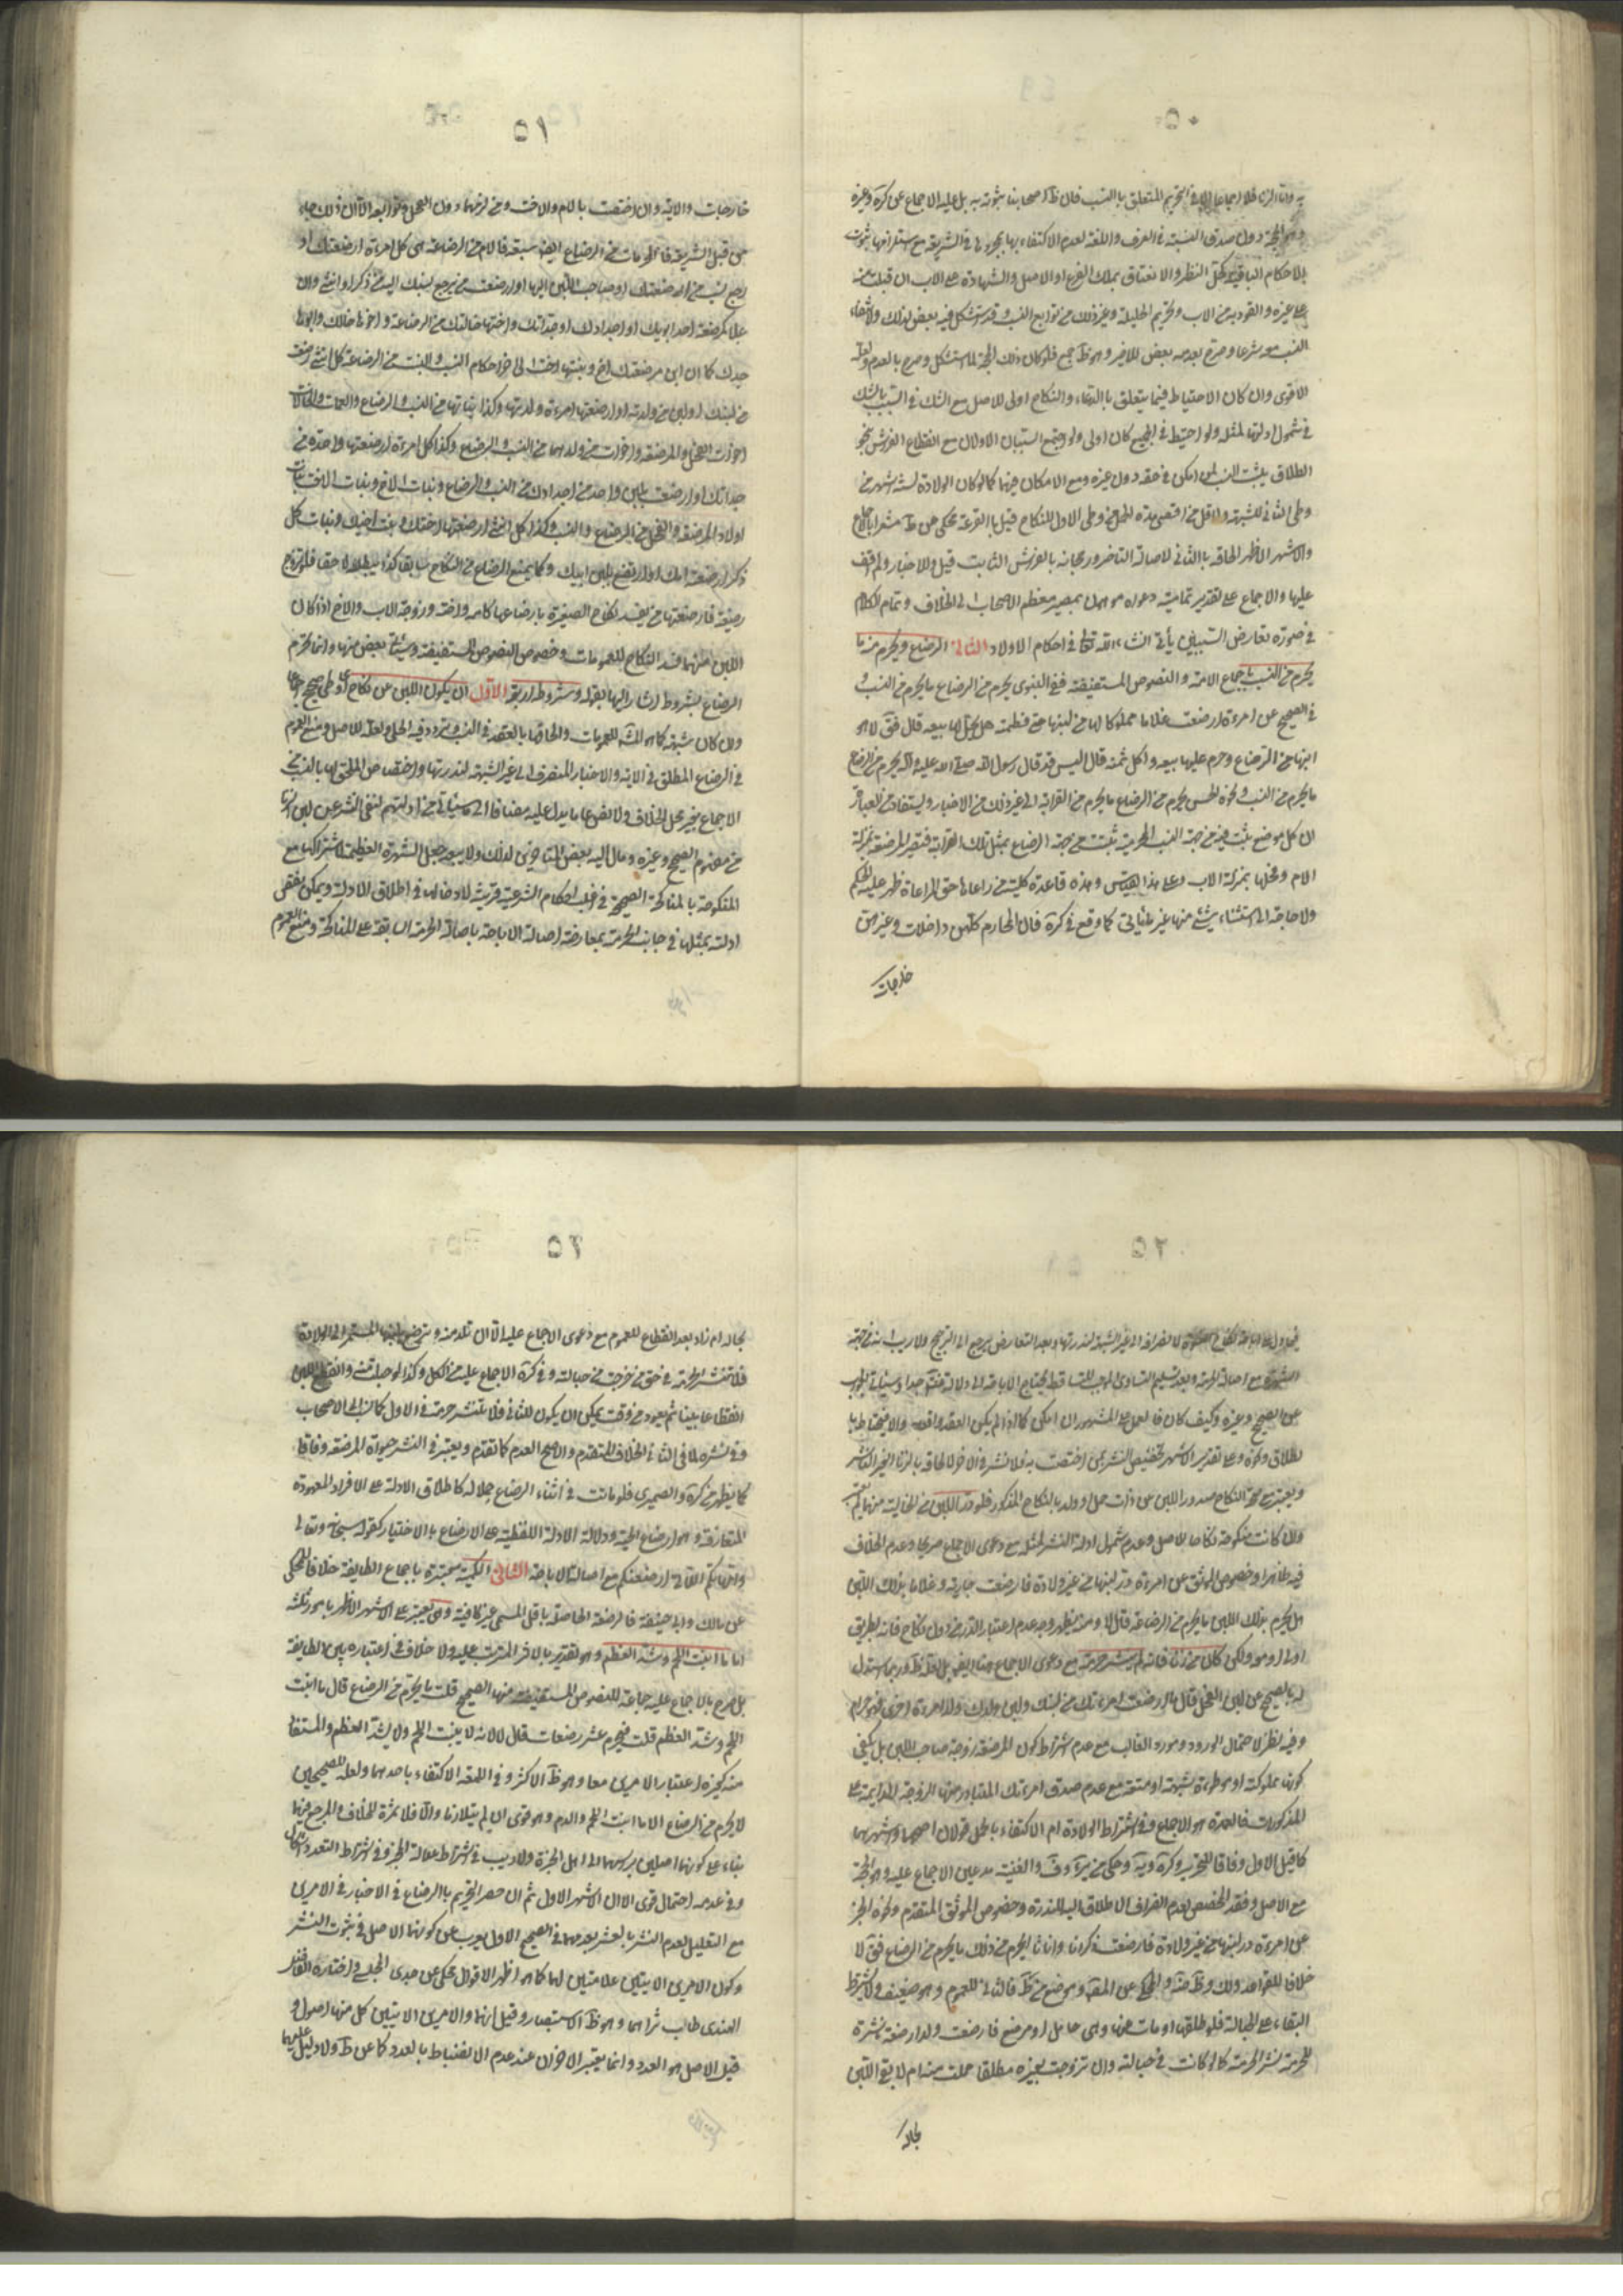 ٥٠
به واما الزنا فلا اجماعا الا في التحريم المتعلق بالنسب فان ظ اصحابنا ثبوته به بل عليه الاجماع عن كره وغيره
وهو الحجة دون صدق النسبة في العرف واللغة لعدم الاكتفاء بها بمجردها في الشريعة مع استلزامها ثبوت
الاحكام الباقية كحل النظر والانعتاق بملك الفرع او الاصل والشهادة على الاب ان قبلت من
على غيره والقود به من الاب وتحريم الحليلة وغير ذلك من توابع النسب وقد يستشكل فيه بعض لذلك ولانتفاء
النسب معه شرعا وصرح بعدمه بعض الاخر وهو ظ جمع فلو كان ذلك الحجة لما استشكل وصرح بالعدم ولعله
الاقوى وان كان الاحتياط فيما يتعلق بالدماء والنكاح اولى للاصل مع الشك في السبب بالشك
في شمول ادلتها لمثله ولو احتيط في الجميع كان اولى ولو اجتمع السببان الاولان مع انقطاع الفرش بنحو
الطلاق يثبت النسب لمن امكن في حقه دون غيره ومع الامكان فيهما كما لو كان الولادة لستة اشهر من
وطى الثاني للشبهة ولاقل من اقصى مدة الحمل من وطى الاول للنكاح قيل بالقرعة يحكى عن ط مشعرا بالاجماع
والاشهر الاظهر الحاقه بالثاني لاصالة التاخر ورجحانه بالفرش الثابت قيل وللاخبار ولم اقف
عليها والاجماع على تقدير تمامية دعواه موهون بمصير معظم الاصحاب الى الخلاف وتمام الكلام
في صورة تعارض السببين يأتي انشاء الله تعالى في احكام الاولاد الثاني الرضاع ويحرم منه ما
يحرم من النسب باجماع الامة والنصوص المستفيضة ففي النبوي يحرم من الرضاع ما يحرم من النسب و
في الصحيح عن امرءة ارضعت غلاما مملوكا لها من لبنها حتى فطمته هل يحل لها بيعه قال فق لا هو
ابنها من الرضاع وحرم عليها بيعه واكل ثمنه قال اليس قد قال رسول الله صلى الله عليه وآله يحرم من الرضاع
ما يحرم من النسب ونحوه الحسن يحرم من الرضاع ما يحرم من القرابة الى غير ذلك من الاخبار ويستفاد من العبارة
ان كل موضع يثبت فيه من جهة النسب المحرمية تثبت من جهة الرضاع بمثل تلك القرابة فتصير المرضعة بمنزلة
الام وفحلها بمنزلة الاب وعلى هذا القيس وهذه قاعدة كلية من راعاها حق المراعاة ظهر عليه الحكم
ولا حاجة الى استثناء شئ منها غير ما يأتي كما وقع في كره فان المحارم كلهن داخلات وغيرهن
خارجات
٥١
خارجات والاية وان اختصت بالام والاخت ومن لزمهما دون الفحل وتوابعه الا ان ذلك جاء
من قبل الشريعة فالمحرمات من الرضاع ايضا سبعة فالام من الرضاعة هى كل امرءة ارضعتك او
رجع نسب من ارضعتك او صاحب اللبن اليها او ارضعت من يرجع نسبك اليه من ذكر او انثى وان
علا كمرضعة احد ابويك او اجدادك او جداتك واختها خالتك من الرضاعة واخوها خالك وابوها
جدك كما ان ابن مرضعتك اخ وبنتها اخت الى اخر احكام النسب والبنت من الرضاعة كل انثى رضعت
من لبنك او لبن من ولدته او ارضعتها امرءة ولدتها وكذا بناتها من النسب والرضاع والعمات والخالات
اخوات الفحل والمرضعة واخوات من ولدهما من النسب والرضاع وكذا كل امرءة ارضعتها واحدة من
جداتك او ارضعت بلبن واحد من اجدادك من النسب والرضاع وبنات الاخ وبنات الاخت بنات
اولاد المرضعة والفحل من الرضاع والنسب وكذا كل انثى ارضعتها اختك وبنت اخيك وبنات كل
ذكر ارضعته امك او ارتضع بلبن ابيك وكما يمنع الرضاع من النكاح سابقا كذا يبطله لاحقا فلو تزوج
رضيعة فارضعتها من يفسد نكاح الصغيرة بارضاعها كامه واخته وزوجة الاب والاخ اذا كان
اللبن منهما فسد النكاح للعمومات وخصوص النصوص المستفيضة وسيأتي بعض منها وانما يحرم
الرضاع بشروط اشار اليها بقوله وشروطه اربعة الاول ان يكون اللبن عن نكاح اى وطى صحيح شرعا
وان كان شبهة كما هو الاشهر للعمومات والحاقها بالعقد في النسب وتردد فيه الحلي ولعله للاصل ومنع العموم
في الرضاع المطلق في الاية والاخبار المنصرف الى غير الشبهة لندرتها واختصاص الملحق لها بالنسب من
الاجماع بغير محل الخلاف ولا نص عاما يدل عليه مضافا الى ما سيأتي من ادلتهم لنفي النشر عن لبن الزنا
من مفهوم الصحيح وغيره ومال اليه بعض المتاخرين لذلك ولا يبعد جعل الشهرة العظيمة لاشتراكها مع
المنكوحة بالمناكحة الصحيحة في غالب احكام الشرعية قرينة لادخالها في اطلاق الادلة ويمكن نقض
ادلته بمثلها في جانب الحرمة بمعارضة اصالة الاباحة باصالة الحرمة السابقة على المناكحة ومنع العموم
٥٢
الى غير الشبهة لندرتها وبعد التعارض يرجع الى الترجيح ولا ريب انه في جهة
الشهرة مع اصالة الحرمة وبعد تسليم التساوى الموجب للتساقط يحتاج الاباحة الى دلالة مفقودة جدا وسيأتي الجواب
عن الصحيح وغيره وكيف كان فالعمل على المشهور ان امكن كما اذا لم يكن العقد واقعا والا فيحتاط با
لطلاق ونحوه وعلى تقدير الاشهر تختص النشر بمن اختصت به فلا نشر في الاخر لالحاقه بالزنا الغير الناشر
ويعتبر مع صحة النكاح صدور اللبن عن ذات حمل او ولد بالنكاح المذكور فلو در اللبن من الخالية منهما لم ينشر
وان كانت منكوحة نكاحا للاصل وعدم شمول ادلة النشر لمثله مع دعوى الاجماع صريحا وعدم الخلاف
فيه ظاهرا وخصوص الموثق عن امرءة در لبنها من غير ولادة فارضعت جارية وغلاما بذلك اللبن
هل يحرم بذلك اللبن ما يحرم من الرضاعة قال لا ومنه يظهر وجه عدم اعتبار الدر من دون نكاح فانه بطريق
اولى او مع ولكن كان من زنا فانه لم ينشر حرمة مع دعوى الاجماع هنا ايضا بل لعله ظ وربما استدل
له بالصحيح عن لبن الفحل قال ما ارضعت امرءتك من لبنك ولبن ولدك ولد امرءة اخرى فهو حرام
وفيه نظر لاحتمال الورود مورد الغالب مع عدم اشتراط كون المرضعة زوجة صاحب اللبن بل يكفي
كونها مملوكته او موطوءة بشبهة او متعة مع عدم صدق امرءتك المتبادر منها الزوجة الدائمية على
المذكورات فالعمدة هو الاجماع وفي اشتراط الولادة ام الاكتفاء بالحمل قولان اصحهما واشهرهما
كما قيل الاول وفاقا للتحرير وكره ويه وحكى من ئر وف والغنية مدعين الاجماع عليه وهو الحجة
مع الاصل وفقد المخصص لعدم انصراف الاطلاق اليه للندرة وخصوص الموثق المتقدم ونحوه الخبر
عن امرءة در لبنها من غير ولادة فارضعت ذكرانا واناثا ايحرم من ذلك ما يحرم من الرضاع فق لا
خلافا للقواعد ولك وظ ضه والمحكي عن المقنعة وموضع من ط فالثاني للعموم وهو ضعيف ولا يشترط
البقاء على الحبالة فلو طلقها او مات عنها وهى حامل او مرضع فارضعت ولدا رضعة ناشرة
للحرمة نشر الحرمة كما لو كانت في حبالته وان تزوجت بغيره مطلقا حملت منه ام لا بقي اللبن
بحاله
٥٣
بحاله ام زاد بعد انقطاع للعموم مع دعوى الاجماع عليه الا ان تلد منه وترضع بلبنها المستمر الى الولادة
فلا تنشر الحرمة في حق من خرجت من حبالته وفي كره الاجماع عليه من الكل وكذا لو حبلت منه وانقطع اللبن
انقطاعا بينا ثم يعود في وقت يمكن ان يكون للثاني فلا تنشر حرمة في الاول كما نسب الى الاصحاب
وفي نشره لما في الثاني الخلاف المتقدم والاصح العدم كما تقدم ويعتبر في النشر حيوة المرضعة وفاقا
كما يظهر من كره والصيمري فلو ماتت في اثناء الرضاع حلاله كاطلاق الادلة على الافراد المعهودة
المتعارفة وهو ارضاع الحية ودلالة الادلة اللفظية على الارضاع بالاختيار كقوله سبحانه وتعالى
وامهاتكم اللاتي ارضعنكم مع اصالة الاباحة الثاني الكمية معتبرة باجماع الطائفة خلافا للمحكي
عن مالك وابي حنيفة فالرضعة الحاصلة باقل المسمى غير كافية وهى تعتبر على الاشهر الاظهر بامور ثلثة
اما ما انبت اللحم وشد العظم وهو تقدير بالاثر المترتب عليه ولا خلاف في اعتباره بين الطائفة
بل صرح بالاجماع عليه جماعة للنصوص المستفيضة منها الصحيح قلت ما يحرم من الرضاع قال ما انبت
اللحم وشد العظم قلت فيحرم عشر رضعات قال لا لانه لا ينبت اللحم ولا يشد العظم والمستفاد
منه كغيره اعتبار الامرين معا وهو ظ الاكثر وفي اللمعة الاكتفاء باحدهما ولعله للصحيحين
لا يحرم من الرضاع الا ما انبت اللحم والدم وهو قوى ان لم يتلازما والا فلا ثمرة للخلاف والمرجع فيهما
بناء على كونهما اصلين براسهما الى اهل الخبرة ولا ريب في اشتراط عدالة المخبر وفي اشتراط التعدد اشكال
وفي عدمه احتمال قوى الا ان الاشهر الاول ثم ان حصر التحريم بالرضاع في الاخبار في الامرين
مع التعليل لعدم النشر بالعشر بعدمهما في الصحيح الاول يعرب عن كونهما الاصل في ثبوت النشر
وكون الامرين الاتيين علامتين لهما كما هو اظهر الاقوال يحكى عن جدى المجلسي واختاره الفاضل
الهندى طاب ثراهما وهو ظ الاستبصار وقيل انهما والامرين الاتيين كل منها اصول و
قيل الاصل هو العدد وانما يعتبر الاخران عند عدم الانضباط بالعدد كما عن ط ولا دليل عليهما